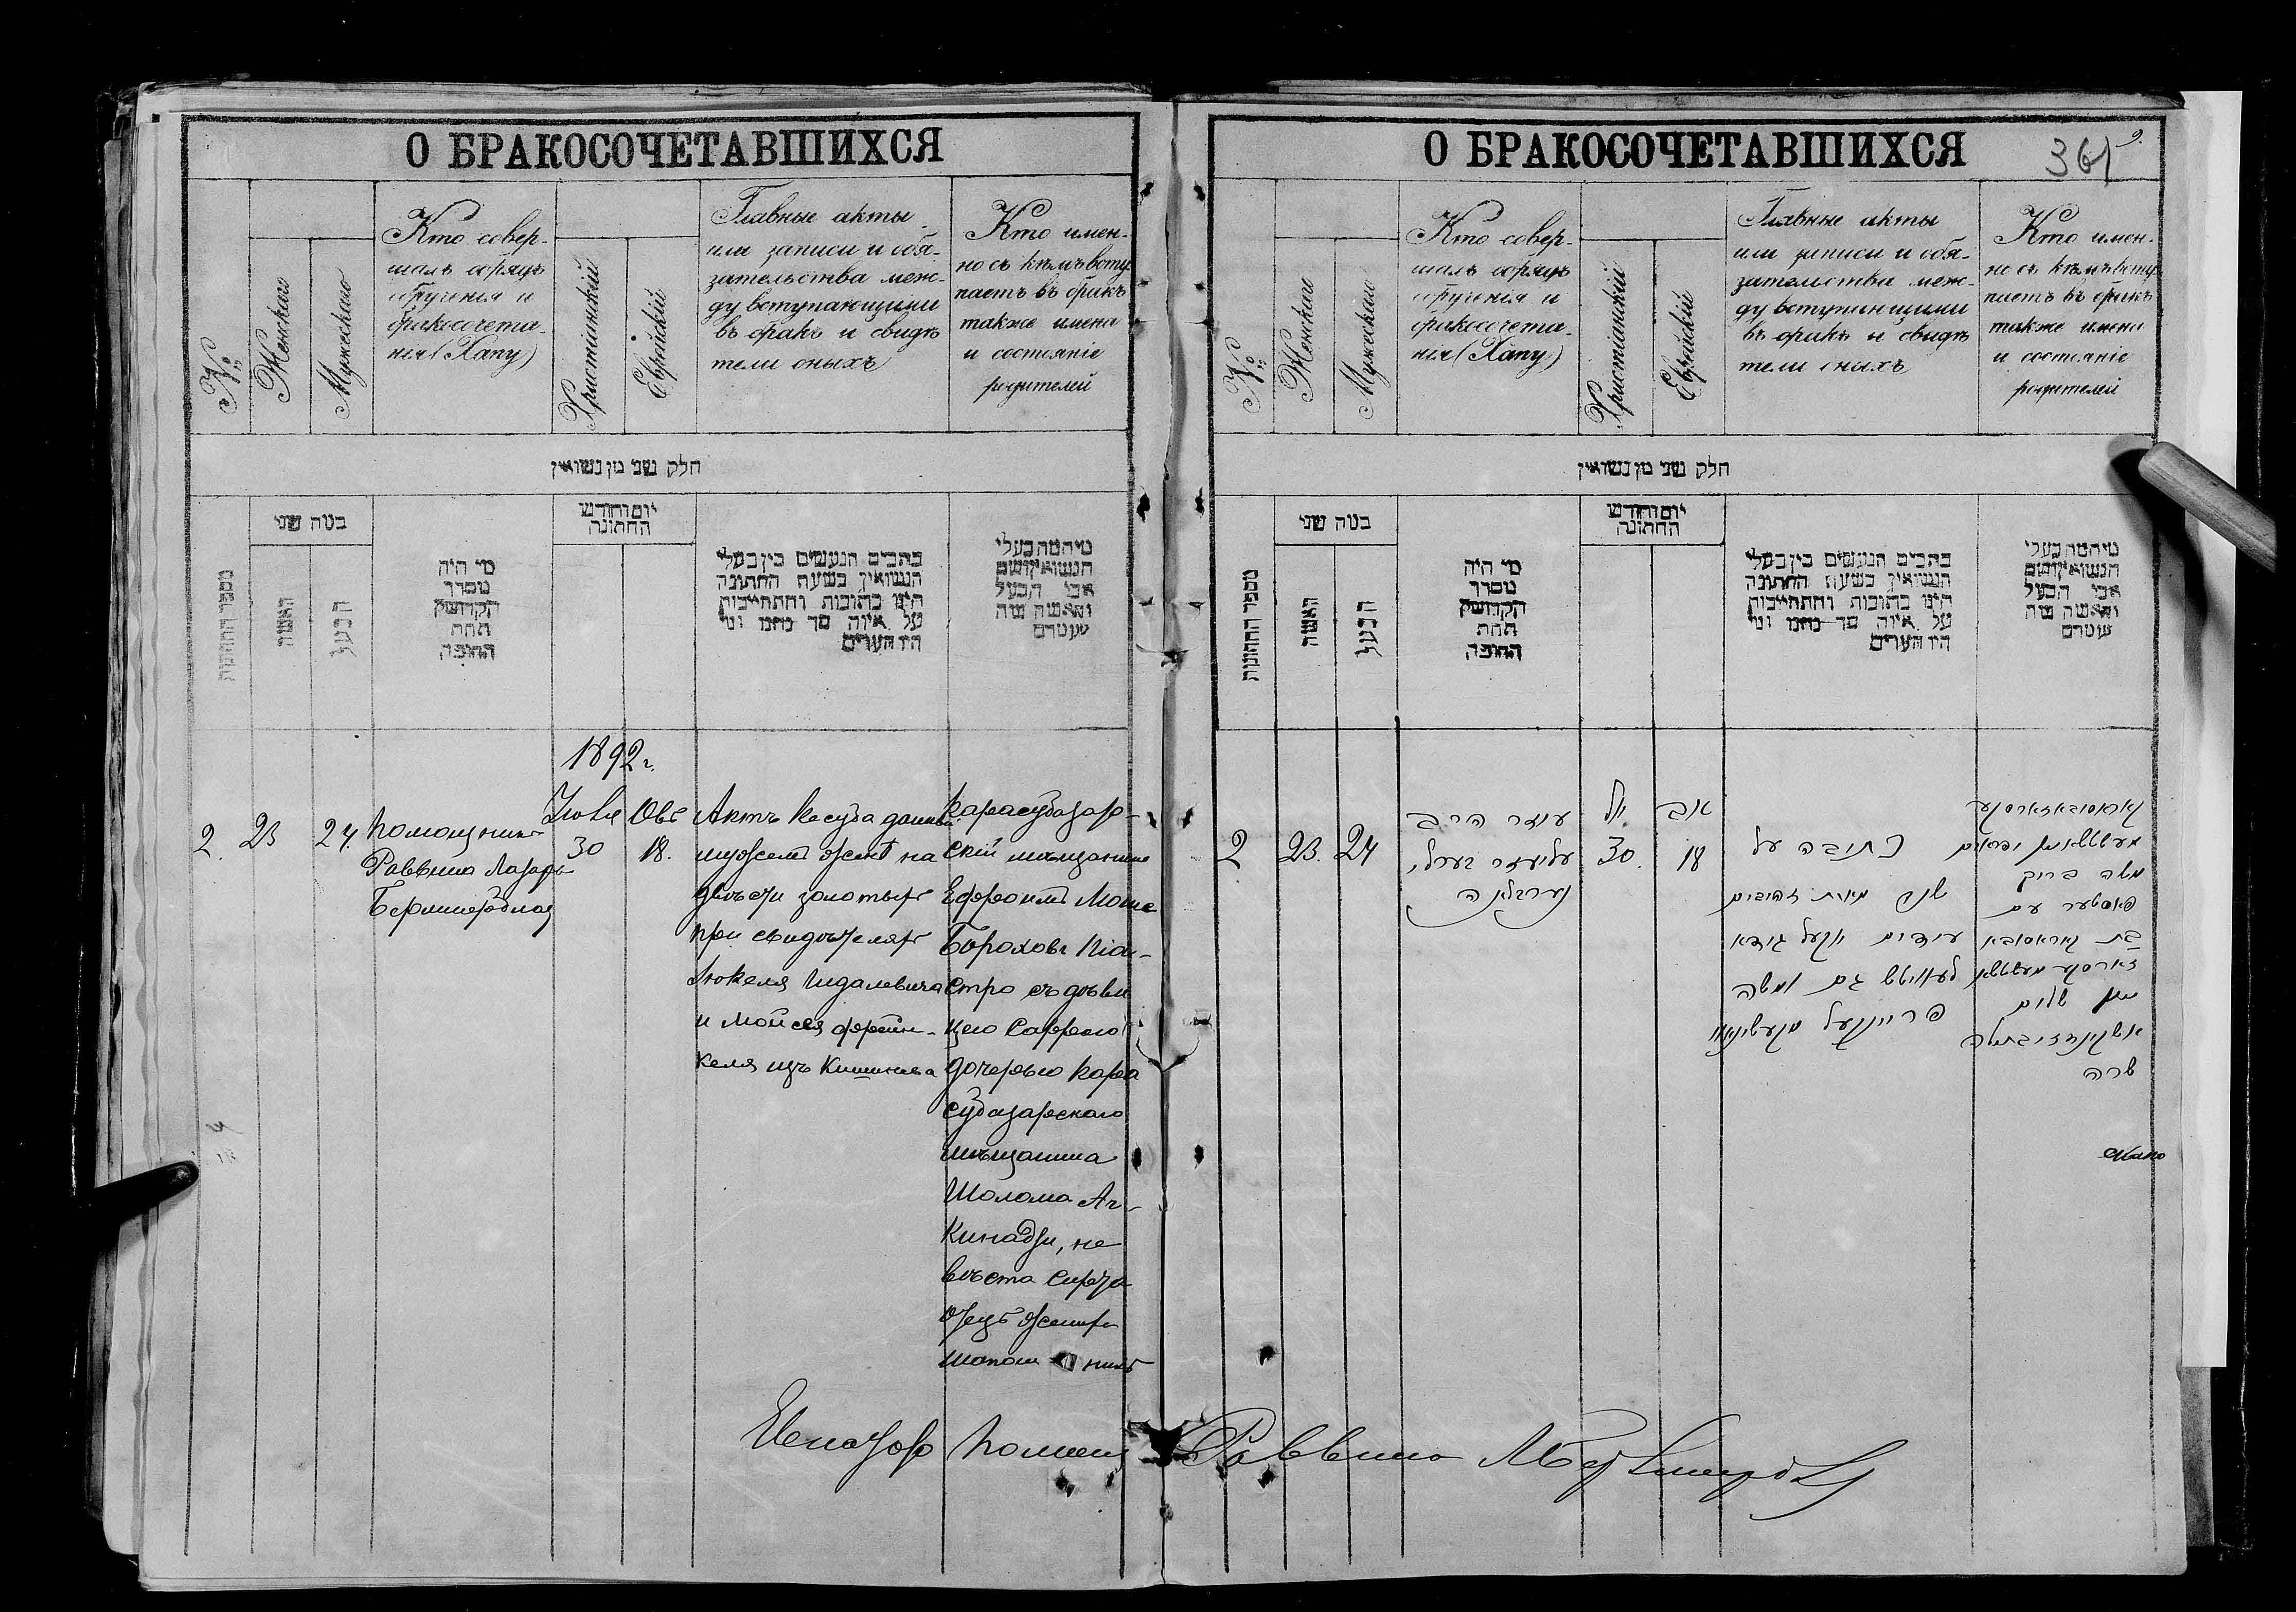 О БРАКОСОЧЕТАВШИХСЯ
№
Женскаго
Мужескаго
Кто совер-
шалъ обрядъ
обрученія и
бракосочета-
нія (Хапу)
Христіанскій
Еврейскій
Главные акты
или записи и обя-
зательства меж-
ду вступающими
въ бракъ и свидѣ
тели оныхъ
Кто имен-
но съ кѣмъ всту
паетъ въ бракъ
также имена
и состояніе
родителей
חלק שני מן נשואין
מספר החתונות
כמה שני
האשה
הבעל
מי היה
מסדר
הקדושין
תחת
החופה
יום וחודש
החתונה
כתבים הנעשים בין בעלי
הנשואין בשעת החתונה
היינו כתובות והתחייבות
על איזה סך נתנו ומי
היו העדים
מי המה בעלי
הנשואין ושם
אבי הבעל
והאשה מה
שעטרם
1892 г.
2.
23
24
Помощникъ
Раввина Лазарь
Іюля
30
Овъ
18.
Актъ Кесуба данный
мужемъ женѣ на
двѣсти золотыхъ
при свидѣтеляхъ
Іюкеля Гидалевича
и Мойсея Френ-
келя изъ Кишинева
Карасубазар-
скій мѣщанинъ
Ефраимъ Моше
Бороховъ Піа-
стро съ дѣви
цею Саррою
дочерью Кара
субазарскаго
мѣщанина
Шолома Ач-
кинадзи, не
вѣста сирота
отецъ жениха
шапошникъ
О БРАКОСОЧЕТАВШИХСЯ
361
№
Женскаго
Мужескаго
Кто совер-
шалъ обрядъ
обрученія и
бракосочета-
нія (Хапу)
Христіанскій
Еврейскій
Главные акты
или записи и обя-
зательства меж-
ду вступающими
въ бракъ и свидѣ
тели оныхъ
Кто имен-
но съ кѣмъ всту
паетъ въ бракъ
также имена
и состояніе
родителей
חלק שני מן נשואין
מספר החתונות
כמה שני
האשה
הבעל
מי היה
מסדר
הקדושין
תחת
החופה
יום וחודש
החתונה
כתבים הנעשים בין בעלי
הנשואין בשעת החתונה
היינו כתובות והתחייבות
על איזה סך נתנו ומי
היו העדים
מי המה בעלי
הנשואין ושם
אבי הבעל
והאשה מה
שעטרם
2
23.
24
עוזר הרב
30.
אב
18
כתובה על
שני מאות זהובים
עידים
גם משה
פרענקעל
משה ברוך
עם
בת
שלום
שרה
Раввина